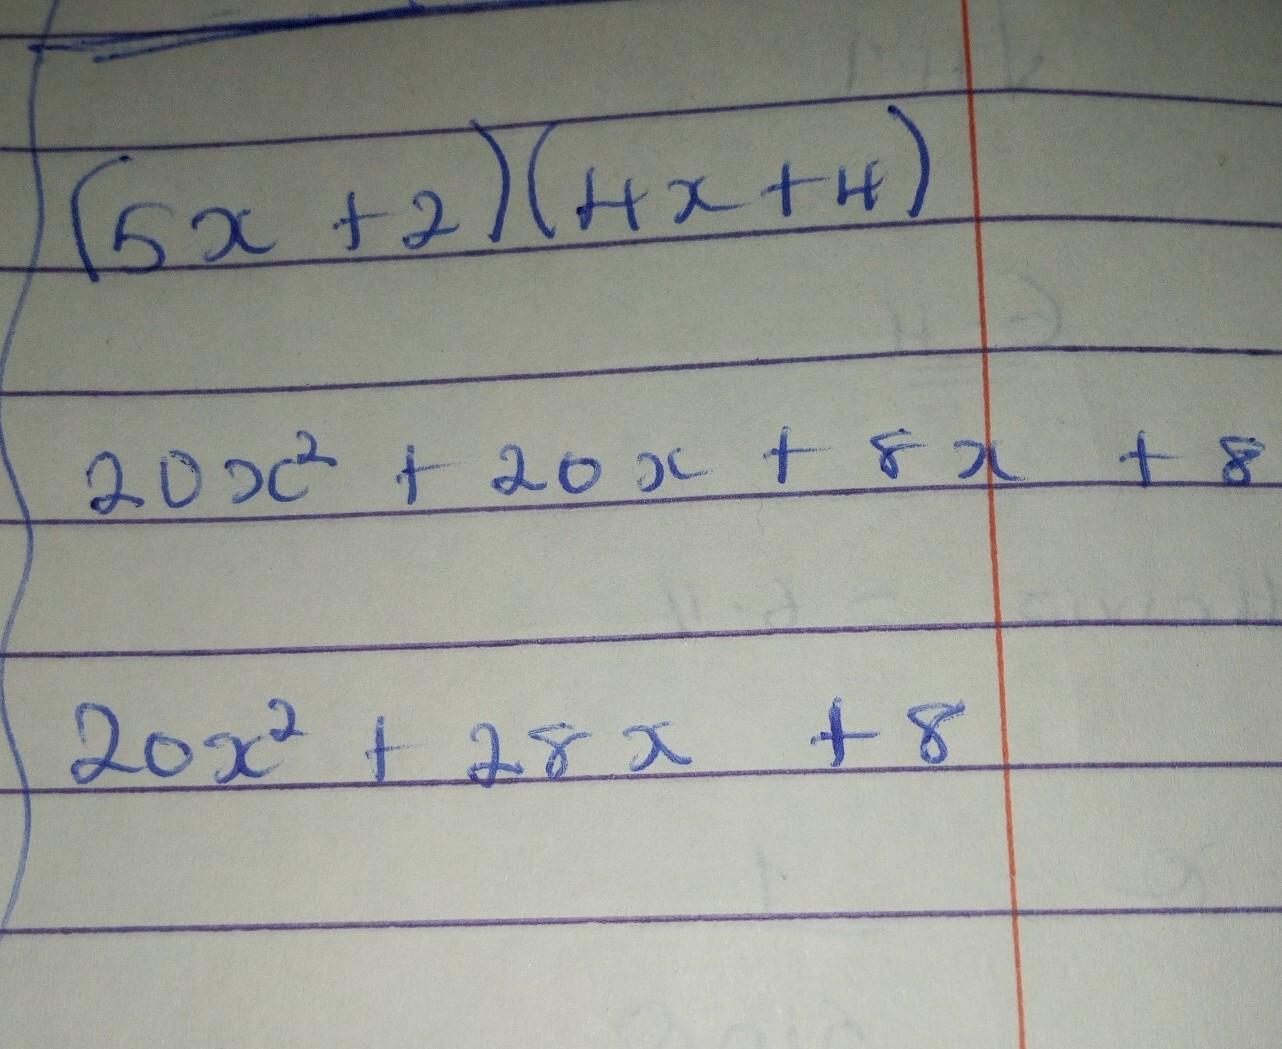 (5x + 2)(4x + 4)
20x² + 20x + 8x + 8
20x² + 28x + 8